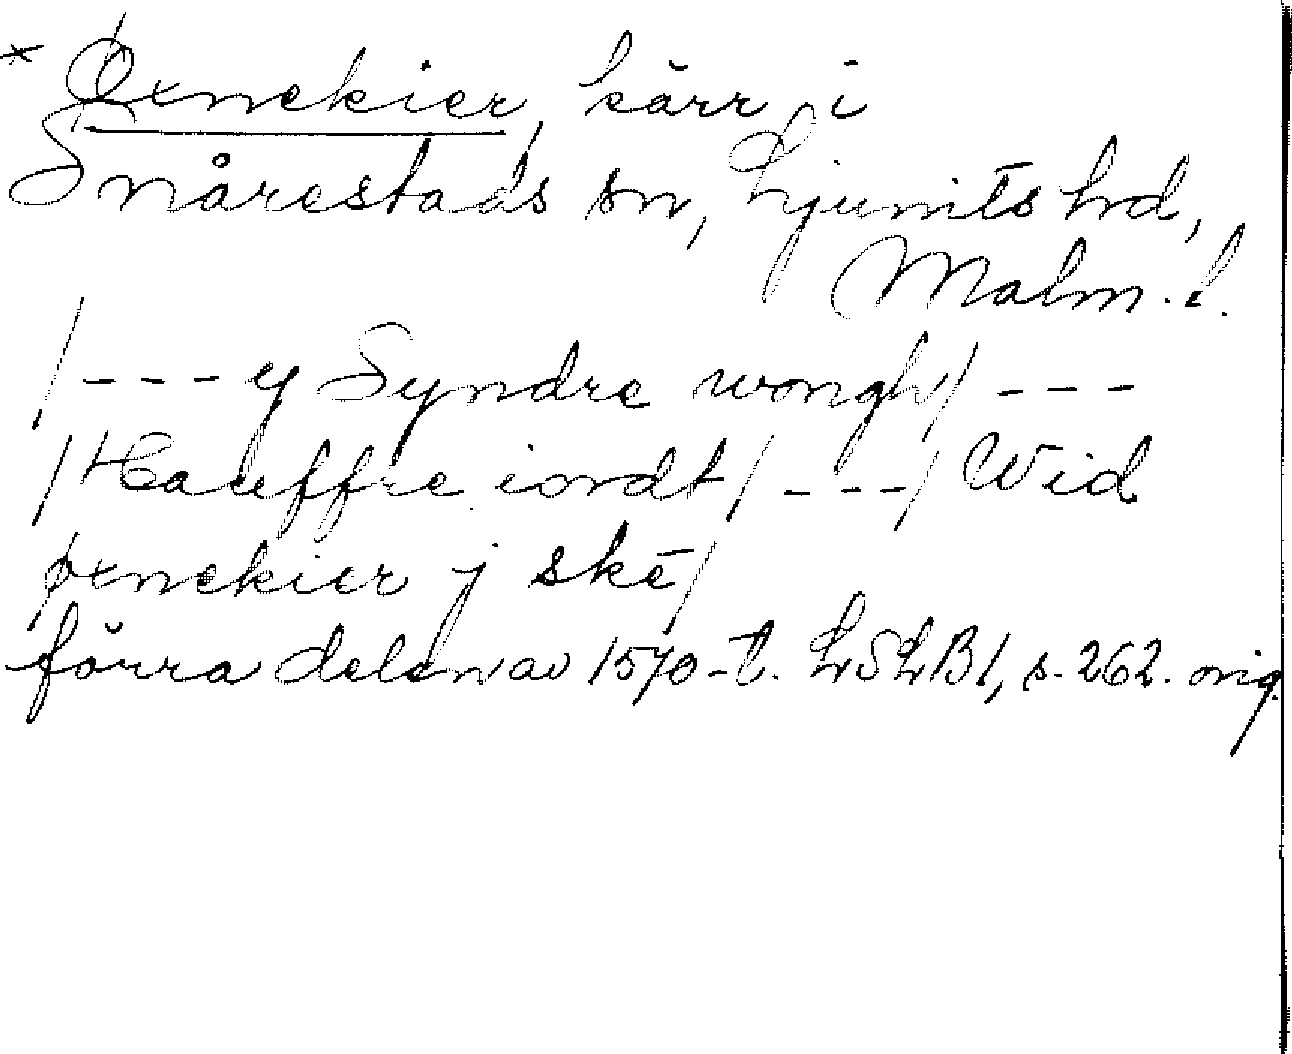 * Øxnekier, kärr i
Snårestads sn, Ljunits hd,
Malm. l.
/--- y Syndre wongh/ ---
/Hauffre iordt/ ---/ Wid
øxnekier j skē/
förra delen av 1570-t. LSLB1, s. 262. orig.